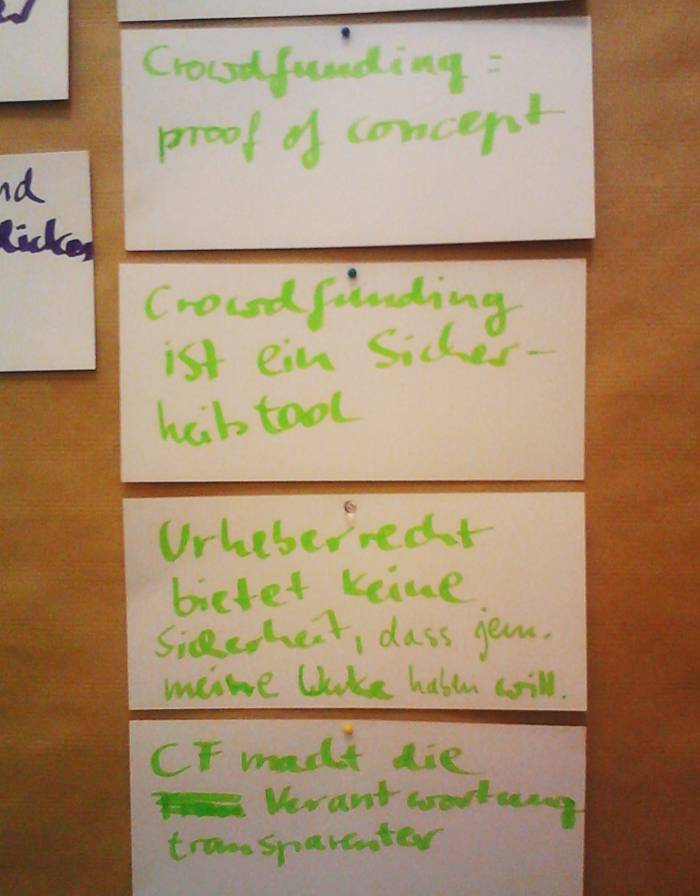 nd
licken
Crowdfunding =
proof of concept
Crowdfunding
ist ein Sicher-
heitstool
Urheberrecht
bietet keine
Sicherheit, dass jem.
meine Werke haben will.
CF macht die
Verantwortung
transparenter